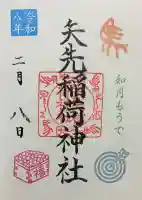 令和
八年
二月
八日
矢先稲荷神社
如月もうで